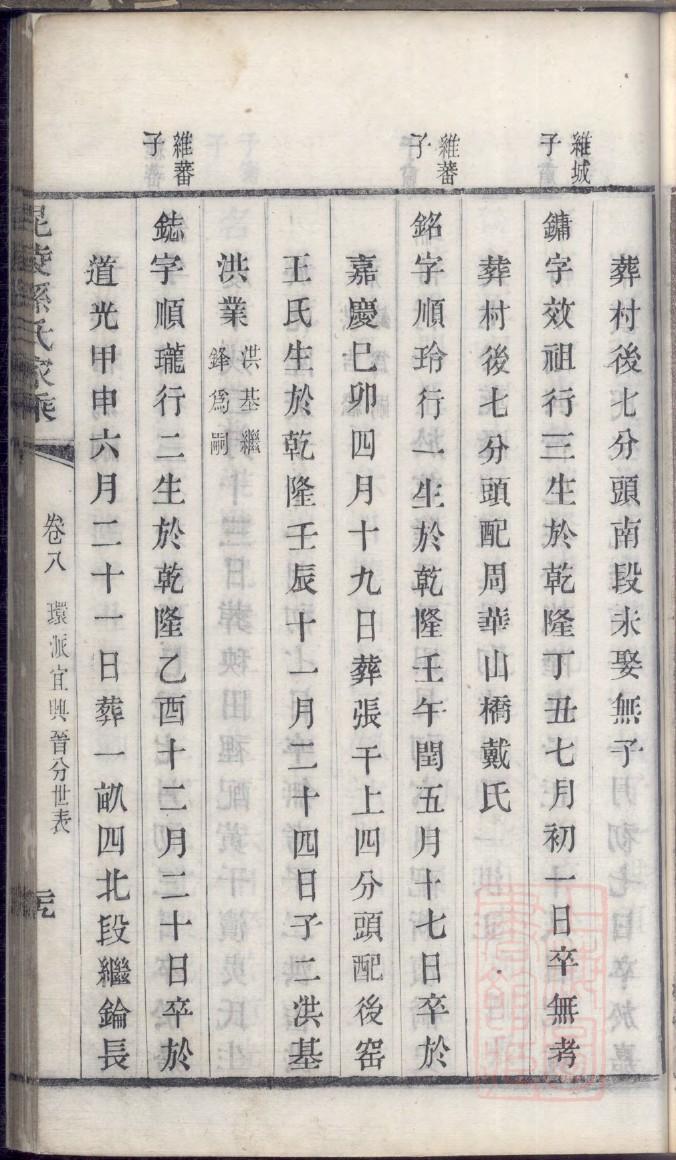 葬村後七分頭南段未娶無子
維城子
鏞字效祖行三生於乾隆丁丑七月初一日卒無考
葬村後七分頭配周華山橋戴氏
維蕃子
銘字順玲行一生於乾隆壬午閏五月十七日卒於
嘉慶巳卯四月十九日葬張干上四分頭配後窑
王氏生於乾隆壬辰十一月二十四日子二洪基
洪業
洪基繼
鋒爲嗣
維蕃子
鋕字順瓏行二生於乾隆乙酉十二月二十日卒於
道光甲申六月二十一日葬一畝四北段繼錀長
毘陵孫氏家乘
卷八 環派宜興晉分世表